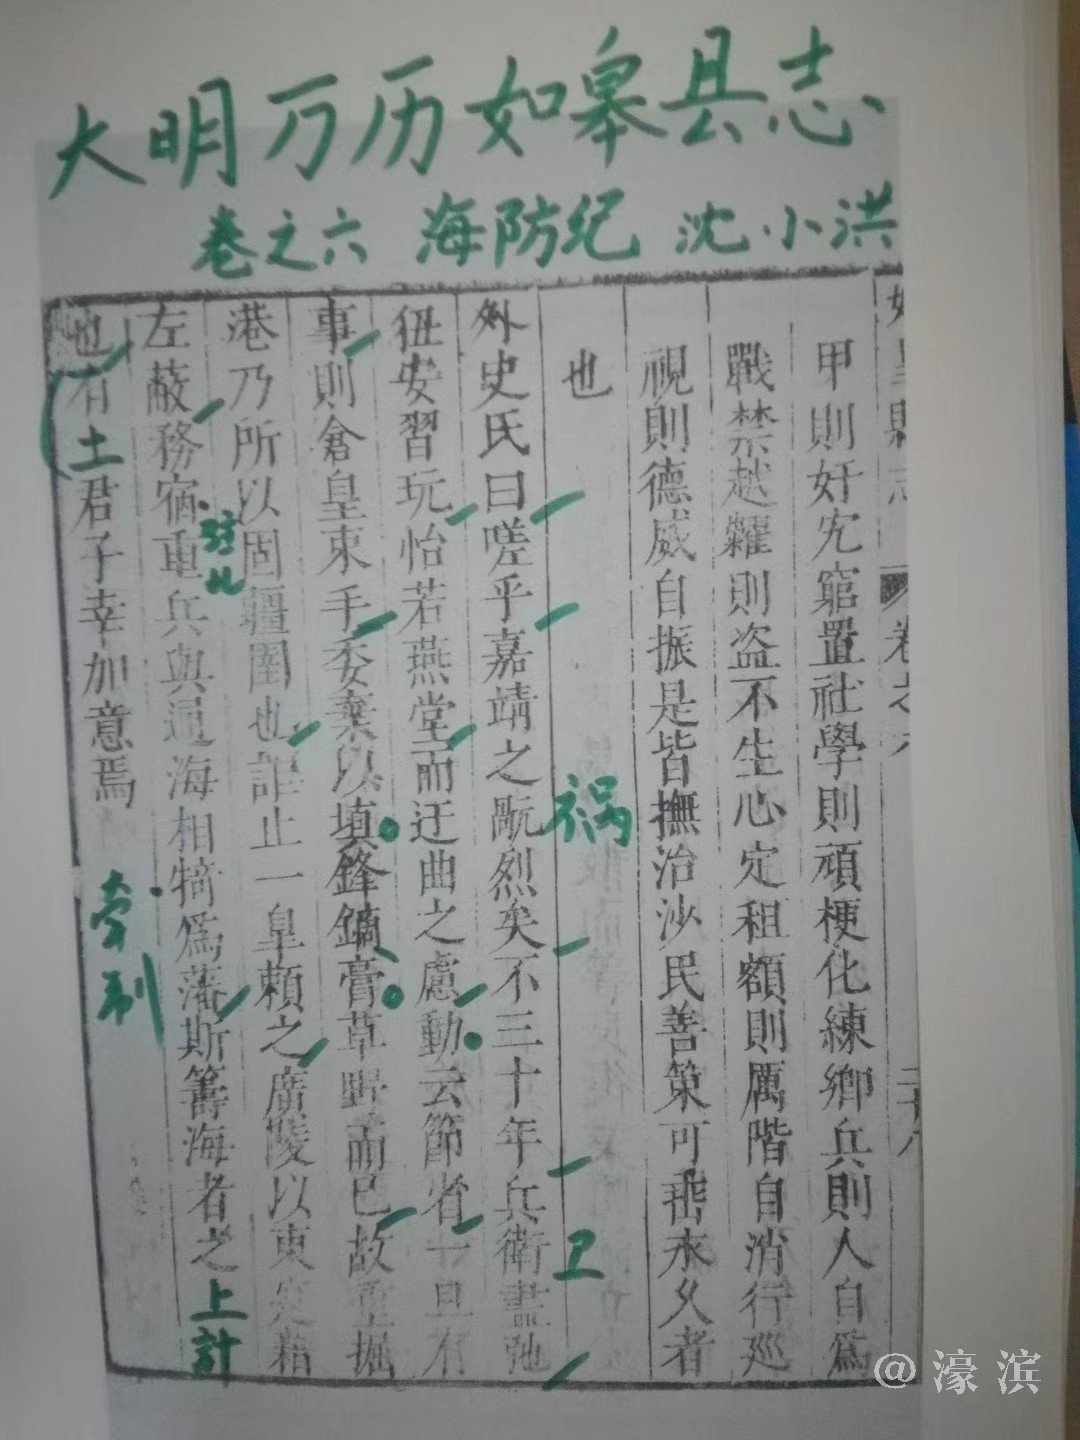 大明万历如皋县志
卷之六 海防纪 沈小洪
卷之六
甲則奸宄窮置社學則頑梗化練鄉兵則人自爲
戰禁越糴則盗不生心定租額則厲階自消行巡
視則德威自振是皆撫治沙民善策可垂永久者
也
祸
卫
外史氏曰嗟乎嘉靖之既烈矣不三十年兵衛盡弛
狃安習玩怡若燕堂而迂曲之慮動云節省一旦有
事則倉皇束手委棄以填鋒鏑膏草野而已故重掘
港乃所以固疆圉也詎止一皐賴之廣陵以東寔藉
左蔽務宿重兵與通海相犄爲藩斯籌海者之上計
也有土君子幸加意焉
牵制
@濠滨